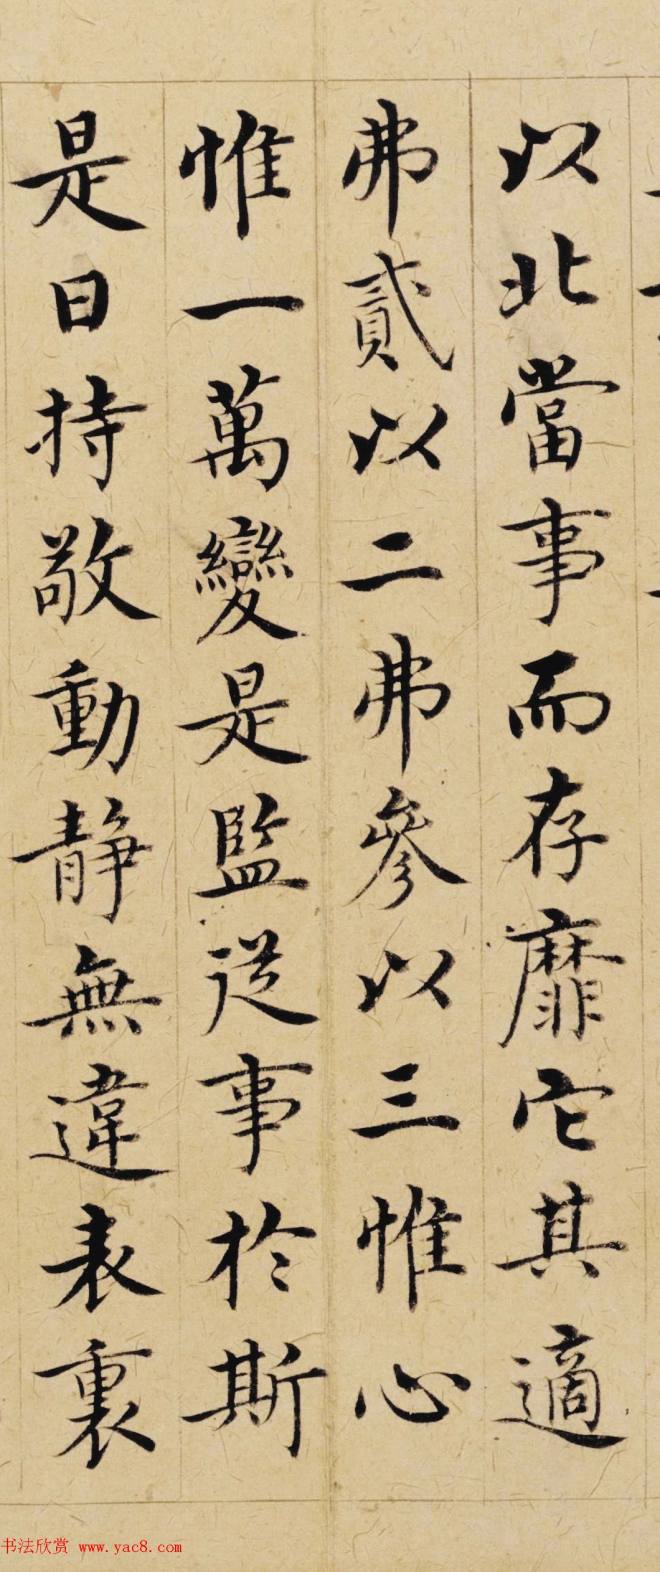 以北當事而存靡它其適
弗貳以二弗參以三惟心
惟一萬變是監從事於斯
是日持敬動静無違表裏
书法欣赏 www.yac8.com